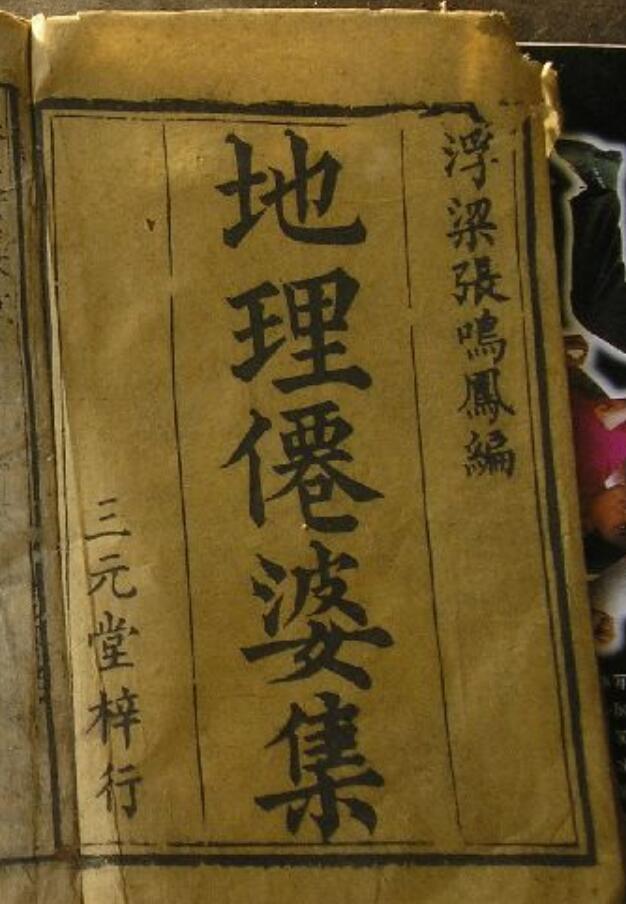 浮梁張鳴鳳編
地理僊婆集
三元堂梓行